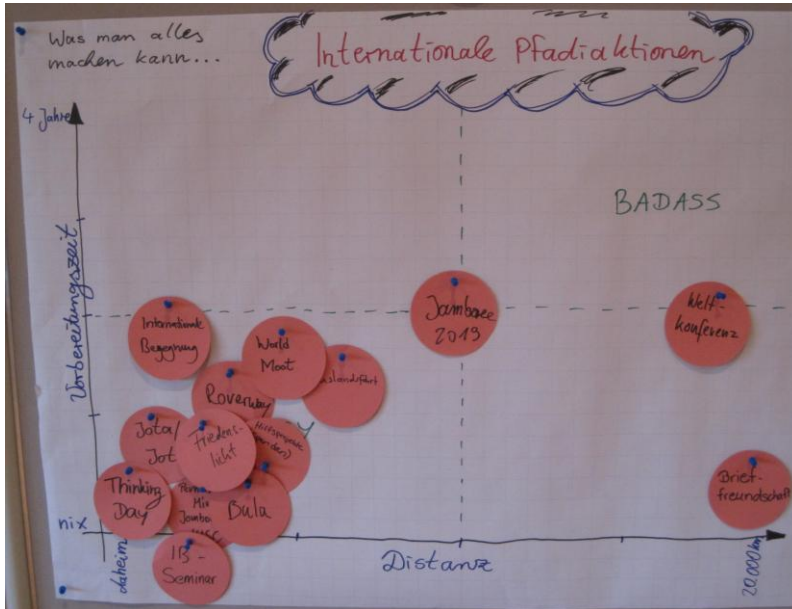 Was man alles
machen kann...
Internationale Pfadiaktionen
4 Jahre
BADASS
Vorbereitungszeit
Internationale
Begegnung
World
Moot
Jamboree
2019
Welt-
konferenz
Roverway
Jota/
Joti
Friedens-
licht
Hilfsprojekte
Thinking
Day
Bula
Brief-
freundschaft
nix
IB-
Seminar
daheim
Distanz
20.000km